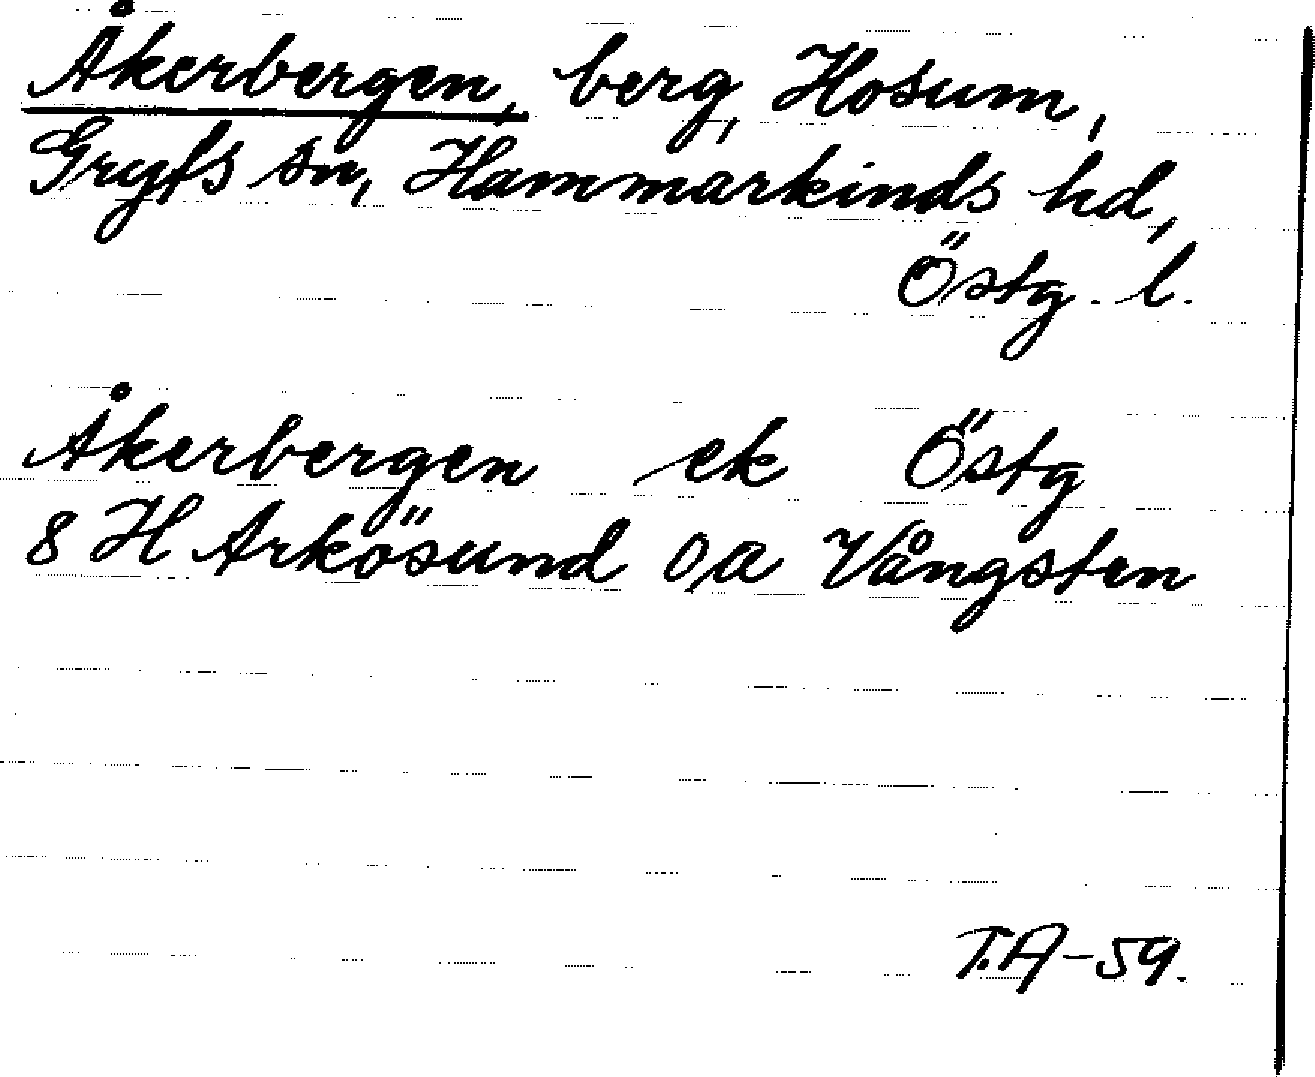 Åkerbergen, berg, Hosum,
Gryts sn, Hammarkinds hd,
Östg. l.
Åkerbergen ek Östg
8 H Arkösund o/a Vångsten
T.A-59.